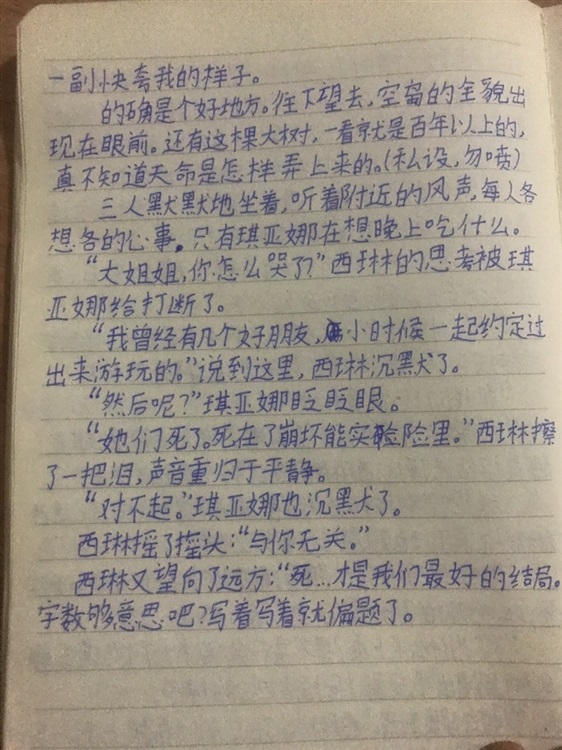 一副快夸我的样子。
的确是个好地方。往下望去,空岛的全貌出
现在眼前。还有这棵大树,一看就是百年以上的,
真不知道天命是怎样弄上来的。(私设,勿喷)
三人默默地坐着,听着附近的风声,每人各
想各的心事。只有琪亚娜在想晚上吃什么。
“大姐姐,你怎么哭了?”西琳的思考被琪
亚娜给打断了。
“我曾经有几个好朋友,小时候一起约定过
出来游玩的。”说到这里,西琳沉默了。
“然后呢?”琪亚娜眨眨眼。
“她们死了。死在了崩坏能实验里。”西琳擦
了一把泪,声音重归于平静。
“对不起。”琪亚娜也沉默了。
西琳摇了摇头:“与你无关。”
西琳又望向了远方:“死...才是我们最好的结局。
字数够意思吧?写着写着就偏题了。